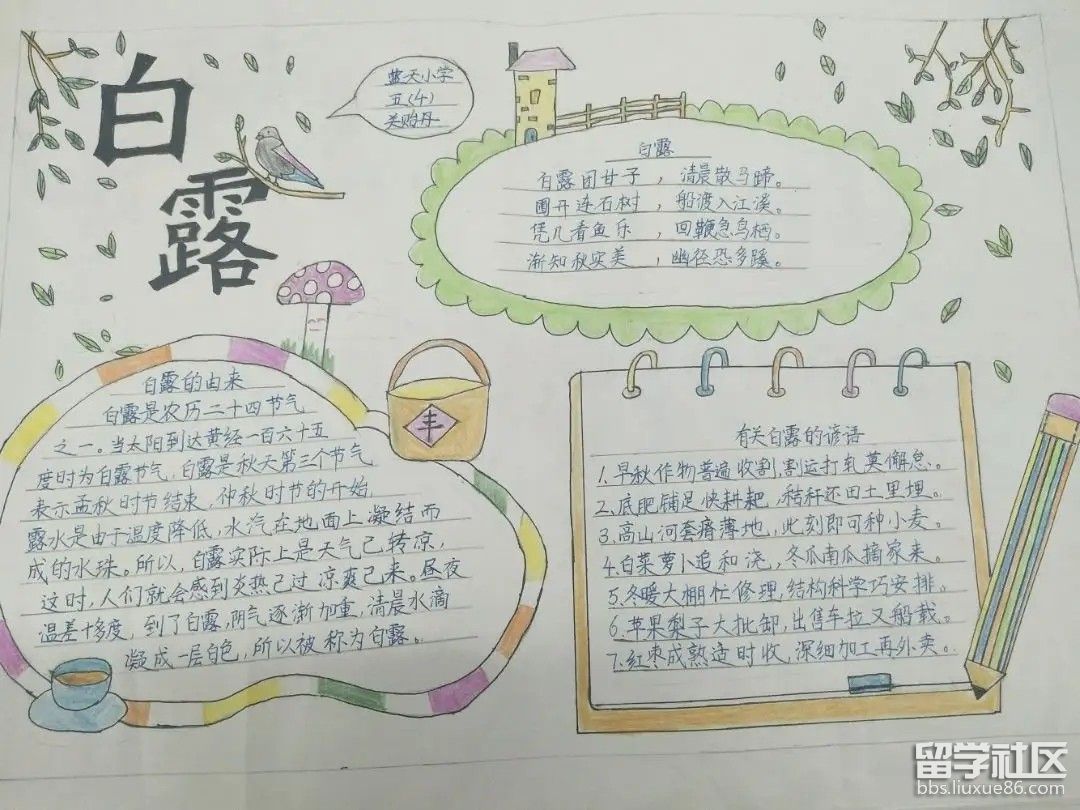 白
露
蓝天小学
五(4)
关贻丹
白露
白露团甘子，清晨散马蹄。
圃开连石树，船渡入江溪。
凭几看鱼乐，回鞭急鸟栖。
渐知秋实美，幽径恐多蹊。
白露的由来
白露是农历二十四节气
之一。当太阳到达黄经一百六十五
度时为白露节气，白露是秋天第三个节气
表示孟秋时节结束，仲秋时节的开始，
露水是由于温度降低，水汽在地面上凝结而
成的水珠。所以，白露实际上是天气已转凉，
这时，人们就会感到炎热已过，凉爽已来。昼夜
温差十多度，到了白露，阴气逐渐加重，清晨水滴
凝成一层白色，所以被称为白露。
丰
有关白露的谚语
1.早秋作物普遍收割，割运打轧莫懈怠。
2.底肥铺足快耕耙，秸秆还田土里埋。
3.高山河套瘠薄地，此刻即可种小麦。
4.白菜萝卜追和浇，冬瓜南瓜摘家来。
5.冬暖大棚忙修理，结构科学巧安排。
6.苹果梨子大批卸，出售车拉又船载。
7.红枣成熟适时收，深细加工再外卖。
留学社区
bbs.liuxue86.com